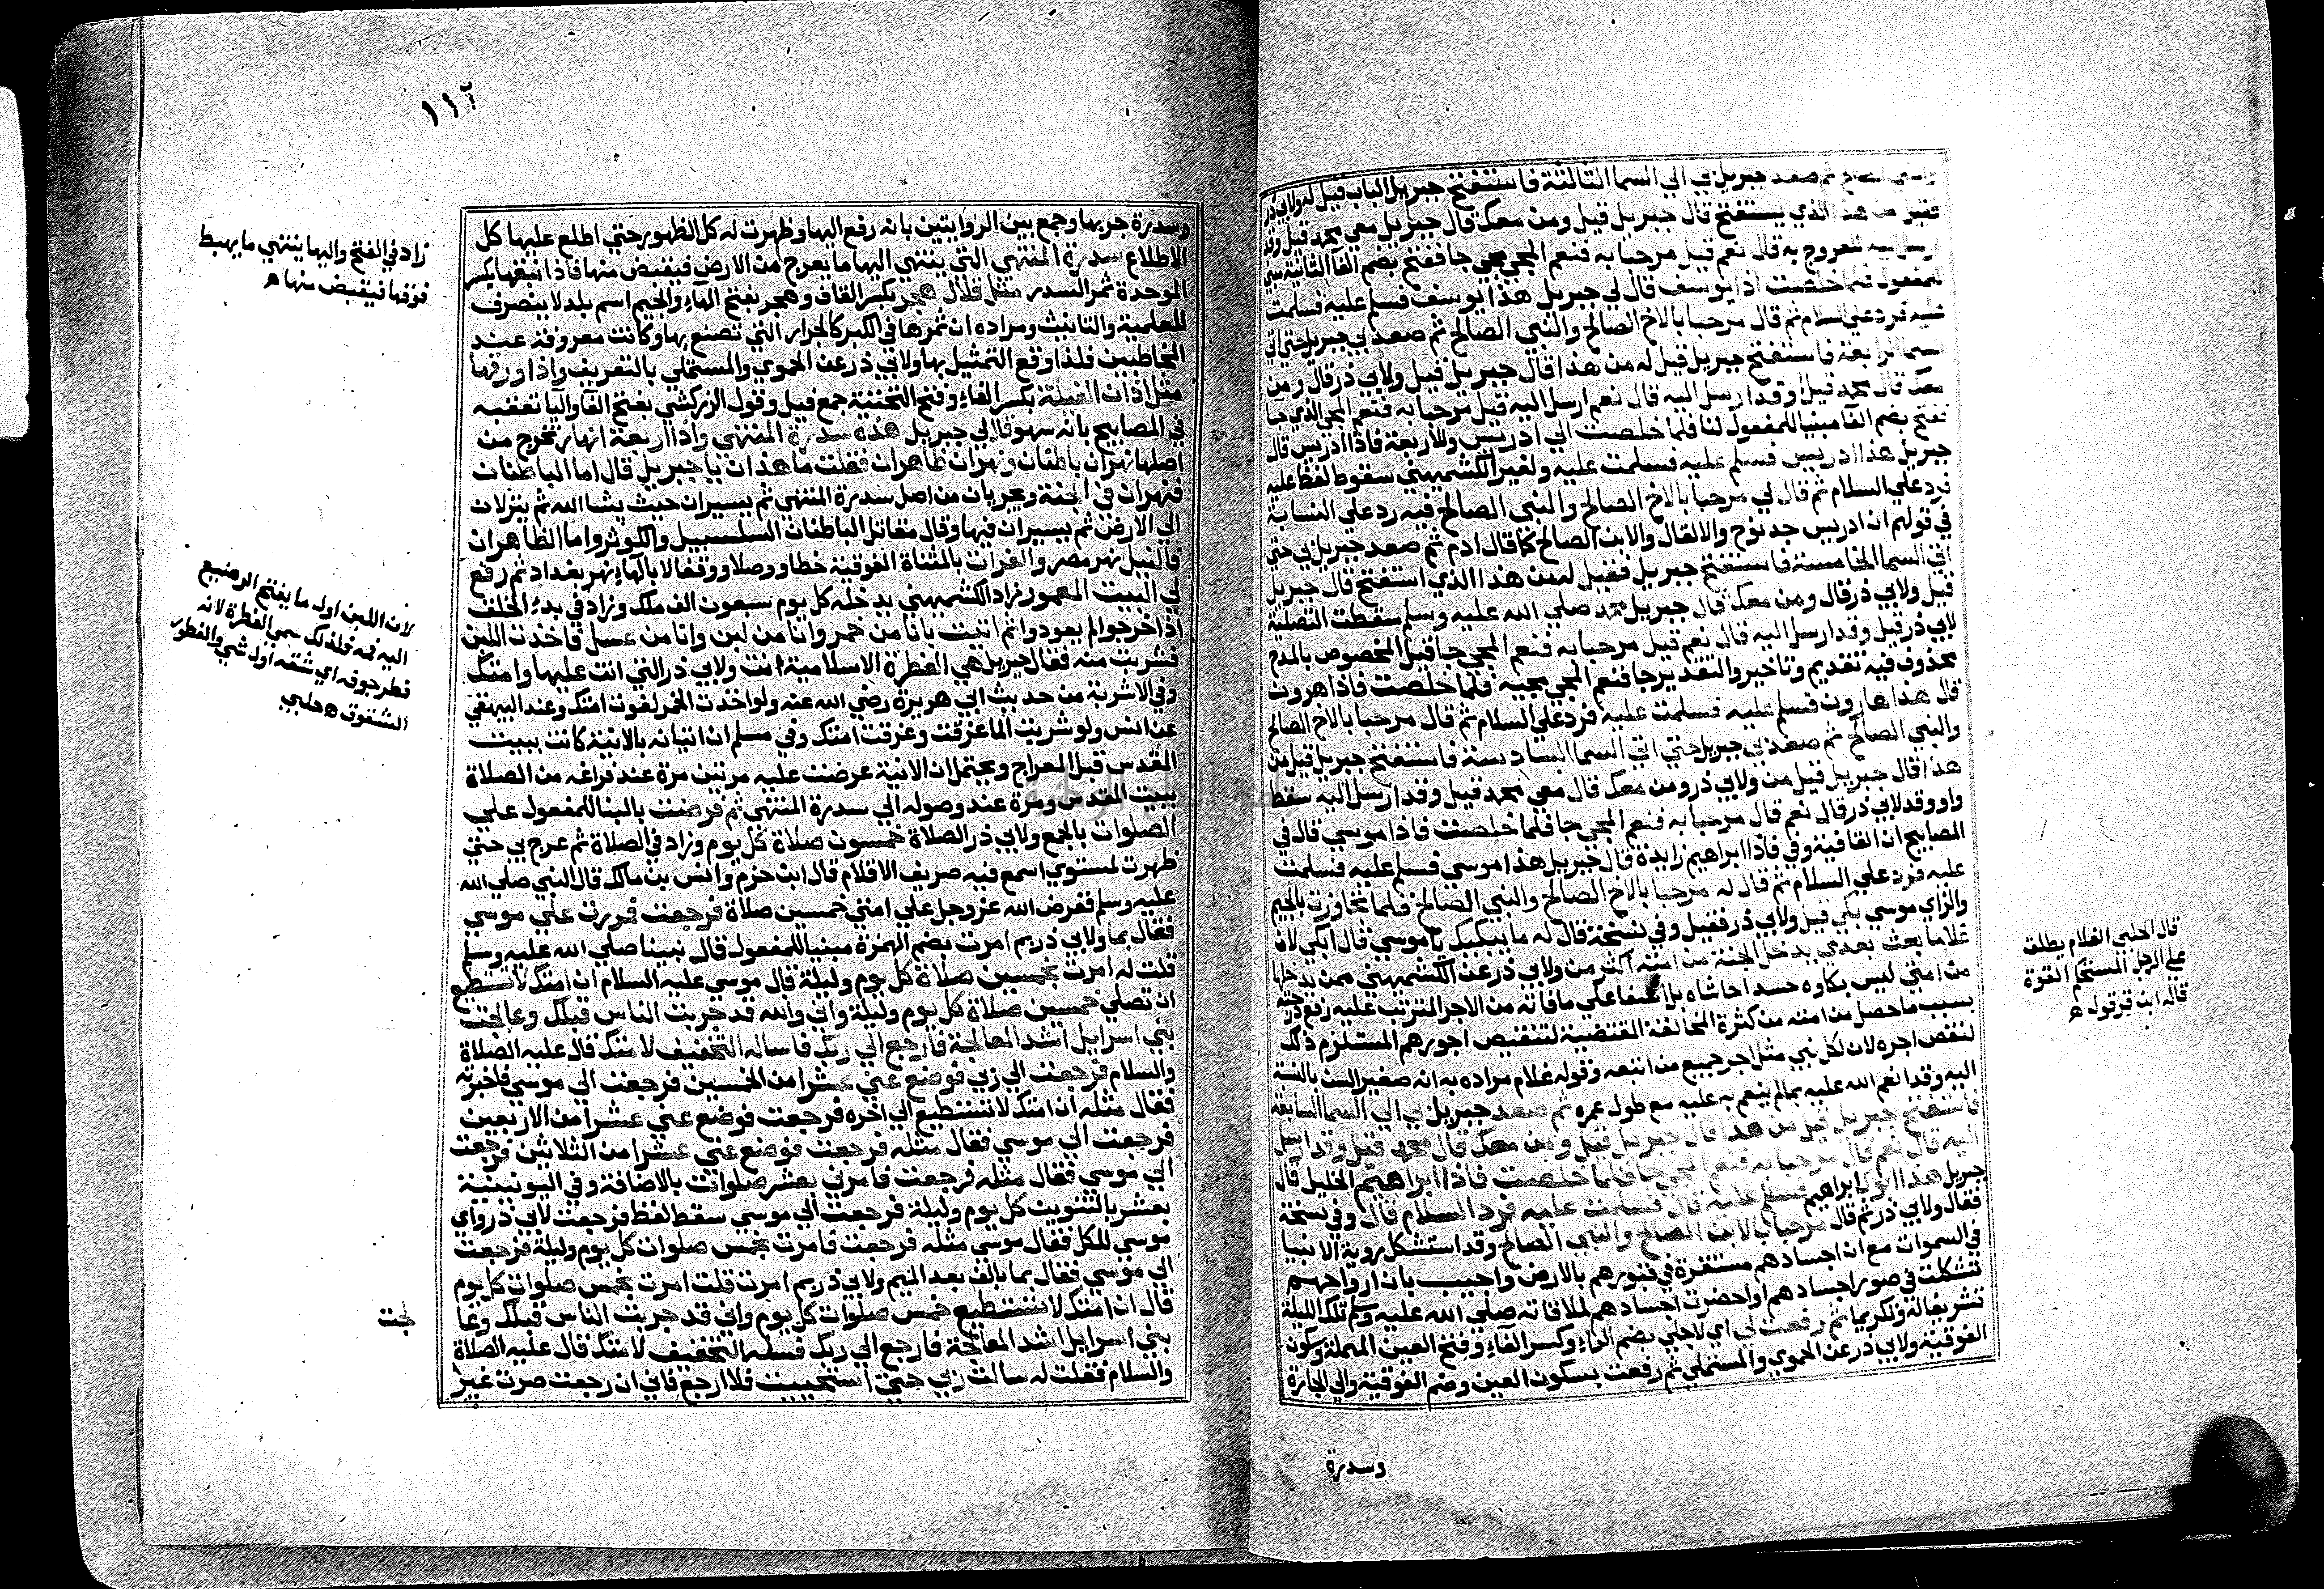 والنبي الصالح ثم صعد جبريل بي الي السما الثالثة فاستفتح جبريل الباب قيل له ولابي ذر
فقيل من هذا الذي يستفتح قال جبريل قيل ومن معك قال جبريل معي محمد قيل وقد
ارسل اليه للعروج به قال نعم قيل مرحبا به فنعم المجي مجي جا ففتح بضم الفا الثانية مبني
للمفعول فلما خلصت اذا يوسف قال لي جبريل هذا يوسف فسلم عليه فسلمت
عليه فرد علي السلام ثم قال مرحبا بالاخ الصالح والنبي الصالح ثم صعد بي جبريل حتي اتي
السما الرابعة فاستفتح جبريل قيل له من هذا قال جبريل قيل ولابي ذر قال ومن
معك قال محمد قيل وقد ارسل اليه قال نعم ارسل اليه قيل مرحبا به فنعم المجي الذي جا
ففتح بضم الفا مبنيا للمفعول لنا فلما خلصت الي ادريس وللاربعة فاذا ادريس قال
جبريل هذا ادريس فسلم عليه فسلمت عليه ولغير الكشميهني سقوط لفظ عليه
فرد علي السلام ثم قال لي مرحبا بالاخ الصالح والنبي الصالح فيه رد علي النسابة
في قولهم ان ادريس جد نوح والا لقال والابن الصالح كما قال ادم ثم صعد جبريل بي حتي
اتي السما الخامسة فاستفتح جبريل فقيل له من هذا الذي استفتح قال جبريل
قيل ولابي ذر قال ومن معك قال جبريل محمد صلي الله عليه وسلم سقطت التصلية
لابي ذر قيل وقد ارسل اليه قال نعم قيل مرحبا به فنعم المجي جا قيل المخصوص بالمدح
محذوف فيه تقديم وتاخير والتقدير جا فنعم المجي مجيه فلما خلصت فاذا هرون
قال هذا هارون فسلم عليه فسلمت عليه فرد علي السلام ثم قال مرحبا بالاخ الصالح
والنبي الصالح ثم صعد بي جبريل حتي اتي السما السادسة فاستفتح جبريل قيل من
هذا قال جبريل قيل من ولابي ذر ومن معك قال معي محمد قيل وقد ارسل اليه سقط
واو وقد لابي ذر قال نعم قال مرحبا به فنعم المجي جا فلما خلصت فاذا موسي قال في
المصابيح ان الفا فيه وفي فاذا ابراهيم زايدة قال جبريل هذا موسي فسلم عليه فسلمت
عليه فرد علي السلام ثم قال له مرحبا بالاخ الصالح والنبي الصالح فلما تجاوزت بالجيم
والزاي موسي بكي قيل ولابي ذر فقيل وفي نسخة قال له ما يبكيك يا موسي قال ابكي لان
غلاما بعث بعدي يدخل الجنة من امته اكثر من ولابي ذر عن الكشميهني ممن يدخلها
من امتي ليس بكاوه حسدا حاشاه بل اسفا علي ما فاته من الاجر المترتب عليه رفع درجته
بسبب ما حصل من امته من كثرة المخالفة المقتضية لتنقيص اجورهم المستلزم ذلك
لنقص اجره لان لكل نبي مثل اجر جميع من اتبعه وقوله غلام مراده به انه صغير السن بالنسبة
اليه وقد انعم الله عليه بما لم ينعم به عليه مع طول عمره ثم صعد جبريل بي الي السما السابعة
فاستفتح جبريل قيل من هذا قال جبريل قيل ومن معك قال محمد قيل وقد ارسل
اليه قال نعم قال مرحبا به فنعم المجي جا فلما خلصت فاذا ابراهيم الخليل قال
جبريل هذا ابوك ابراهيم فسلم عليه قال فسلمت عليه فرد السلام قال وفي نسخة
فقال ولابي ذر ثم قال مرحبا بالابن الصالح والنبي الصالح وقد استشكل روية الانبيا
في السموات مع ان اجسادهم مستقرة في قبورهم بالارض واجيب بان ارواحهم
تشكلت في صور اجسادهم او احضرت اجسادهم لملاقاته صلي الله عليه وسلم تلك الليلة
تشريفا له وتكريما ثم رفعت لي اي لاجلي بضم الراء وكسر الفاء وفتح العين المهملة وسكون
الفوقية ولابي ذر عن الحموي والمستملي ثم رفعت بسكون العين وضم الفوقية والي الجارة
وسدرة
قال الحلبي الغلام يطلق
علي الرجل المستحكم القوة
قاله ابن قرقول ه
١١٢
وسدرة جر بها وجمع بين الروايتين بانه رفع اليها وظهرت له كل الظهور حتي اطلع عليها كل
الاطلاع سدرة المنتهي التي ينتهي اليها ما يعرج من الارض فيقبض منها فاذا نبقها بكسر
الموحدة ثمر السدر مثل قلال هجر بكسر القاف وهجر بفتح الهاء والجيم اسم بلد لا ينصرف
للعلمية والتانيث ومراده ان ثمرها في الكبر كالجرار التي تصنع بها وكانت معروفة عند
المخاطبين فلذا وقع التمثيل بها ولابي ذر عن الحموي والمستملي بالتعريف واذا ورقها
مثل اذان الفيلة بكسر الفاء وفتح التحتية جمع فيل وقول الزركشي بفتح الفا واليا تعقبه
في المصابيح بانه سهو قال لي جبريل هذه سدرة المنتهي واذا اربعة انهار تخرج من
اصلها نهران باطنان ونهران ظاهران فقلت ما هذان يا جبريل قال اما الباطنان
فنهران في الجنة ويجريان من اصل سدرة المنتهي ثم يسيران حيث يشا الله ثم ينزلان
الي الارض ثم يسيران فيها وقال مقاتل الباطنان السلسبيل والكوثر واما الظاهران
فالنيل نهر مصر والفرات بالمثناة الفوقية خطا ووصلا ووقفا لا بالهاء نهر بغداد ثم رفع
لي البيت المعمور زاد الكشميهني يدخله كل يوم سبعون الف ملك وزاد في بدء الخلق
اذا خرجوا لم يعودوا ثم اتيت بانا من خمر وانا من لبن وانا من عسل فاخذت اللبن
فشربت منه فقال جبريل هي الفطرة الاسلامية انت ولابي ذر التي انت عليها وامتك
وفي الاشربة من حديث ابي هريرة رضي الله عنه ولو اخذت الخمر لغوت امتك وعند البيهقي
عن انس ولو شربت الما غرقت وغرقت امتك وفي مسلم ان اتيانه بالانية كانت ببيت
المقدس قبل المعراج ويحتمل ان الانية عرضت عليه مرتين مرة عند فراغه من الصلاة
ببيت المقدس ومرة عند وصوله الي سدرة المنتهي ثم فرضت بالبنا للمفعول علي
الصلوات بالجمع ولابي ذر الصلاة خمسون صلاة كل يوم وزاد في الصلاة ثم عرج بي حتي
ظهرت لمستوي اسمع فيه صريف الاقلام قال ابن حزم وانس بن مالك قال النبي صلي الله
عليه وسلم ففرض الله عز وجل علي امتي خمسين صلاة فرجعت فمررت علي موسي
فقال بما ولابي ذر بم امرت بضم الهمزة مبنيا للمفعول قال نبينا صلي الله عليه وسلم
قلت له امرت بخمسين صلاة كل يوم وليلة قال موسي عليه السلام ان امتك لا تستطيع
ان تصلي خمسين صلاة كل يوم وليلة واني والله قد جربت الناس قبلك وعالجت
بني اسرايل اشد المعالجة فارجع الي ربك فاساله التخفيف لامتك قال عليه الصلاة
والسلام فرجعت الي ربي فوضع عني عشرا من الخمسين فرجعت الي موسي فاخبرته
فقال مثله ان امتك لا تستطيع الي اخره فرجعت فوضع عني عشرا من الاربعين
فرجعت الي موسي فقال مثله فرجعت فوضع عني عشرا من الثلاثين فرجعت
الي موسي فقال مثله فرجعت فامرني بعشر صلوات بالاضافة وفي اليونينية
بعشر بالتنوين كل يوم وليلة فرجعت الي موسي سقط لفظ فرجعت لابي ذر واي
موسي للكل فقال موسي مثله فرجعت فامرت بخمس صلوات كل يوم وليلة فرجعت
الي موسي فقال بما بالف بعد الميم ولابي ذر بم امرت قلت امرت بخمس صلوات كل يوم
قال ان امتك لا تستطيع خمس صلوات كل يوم واني قد جربت الناس قبلك وعا
لجت
بني اسرايل اشد المعالجة فارجع الي ربك فسله التخفيف لامتك قال عليه الصلاة
والسلام فقلت له سالت ربي حتي استحييت فلا ارجع فاني ان رجعت صرت غير
زاد في الفتح واليها ينتهي ما يهبط
فوقها فيقبض منها ه
لان اللبن اول ما يفتح الرضيع
اليه فمه فلذلك سمي الفطرة لانه
فطر جوفه اي شقه اول شي والفطور
الشقوق ه حلبي